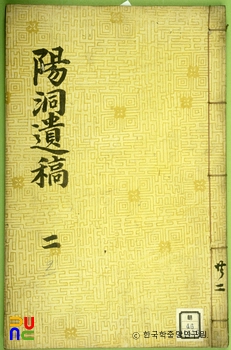 陽洞遺稿
二
共二
UCI
© 한국학중앙연구원